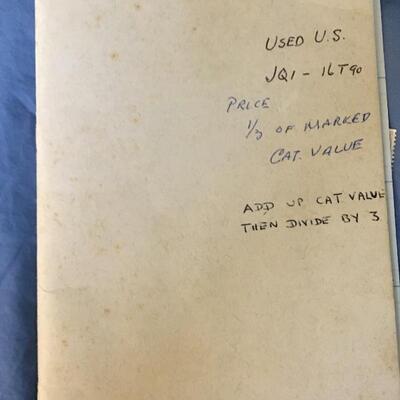 USED U.S.
JQ1 - 16T90
PRICE
1/3 OF MARKED
CAT. VALUE
ADD UP CAT VALUE
THEN DIVIDE BY 3